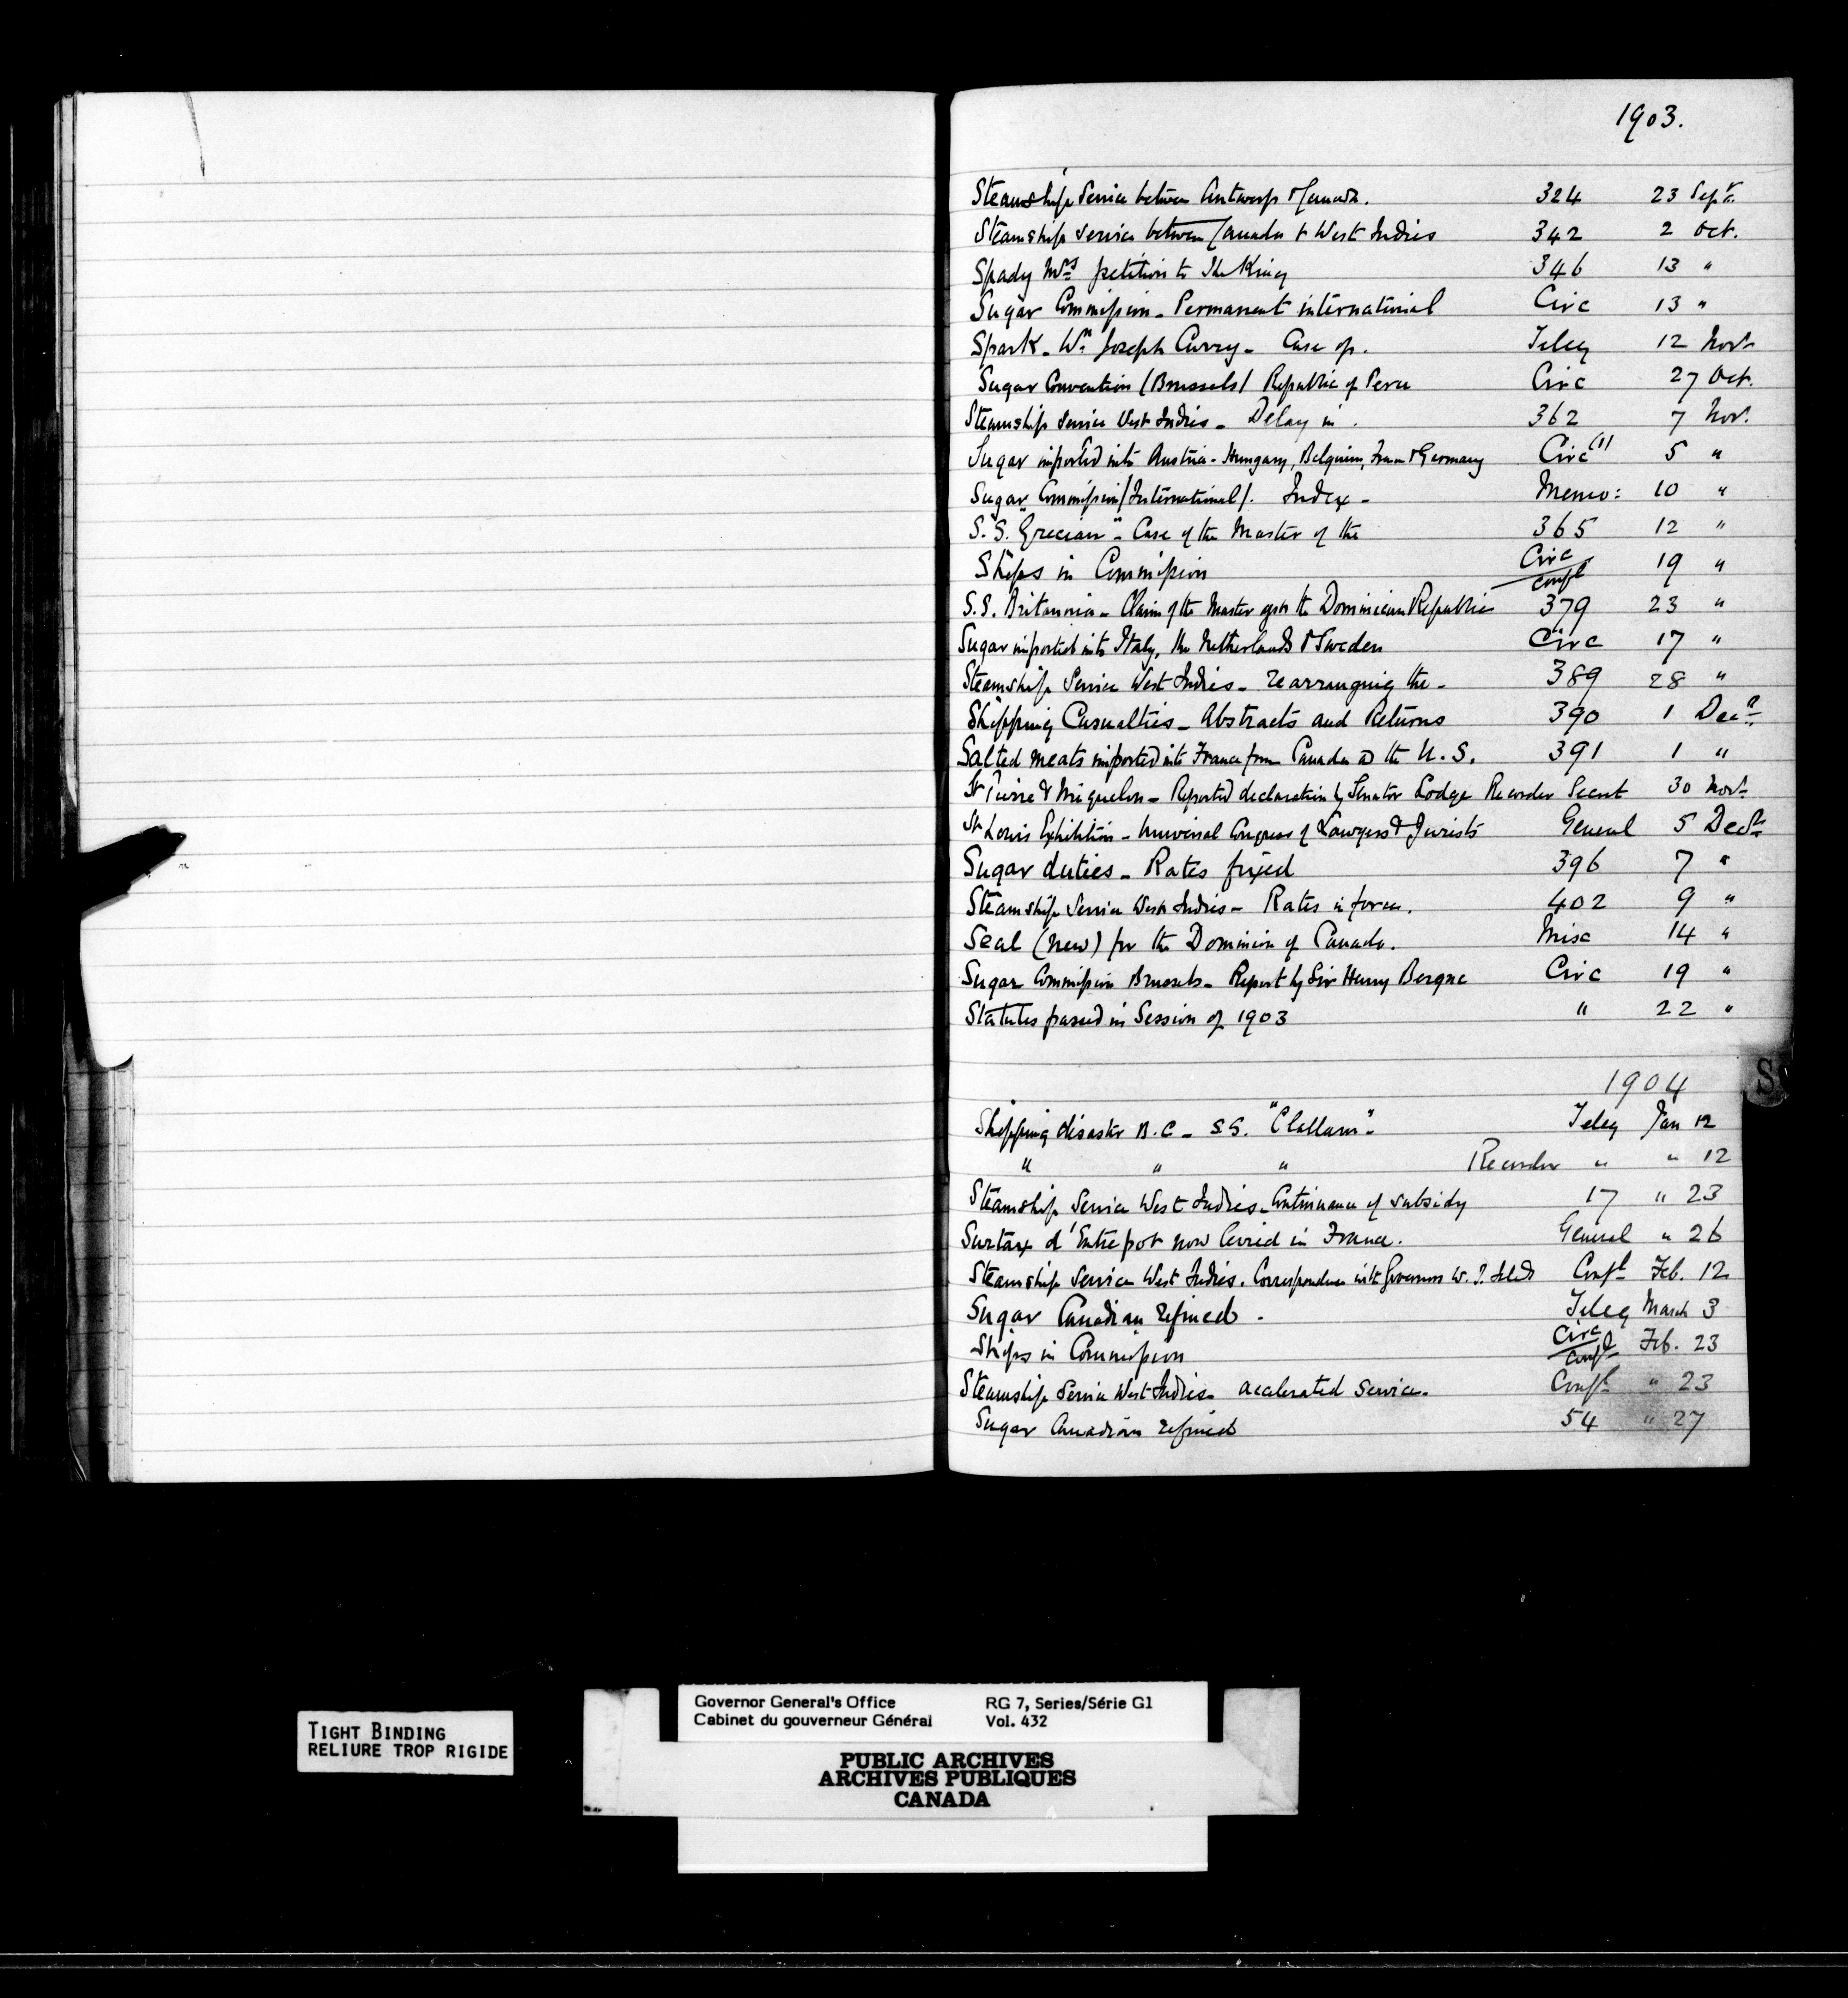 1903.
Steamship Service between Antwerp & Canada. 324 23 Sepr.
Steamship service between Canada & West Indies 342 2 Oct.
Spady Mrs petition to The King 346 13 "
Sugar Commission - Permanent international Circ 13 "
Spark - Wm Joseph Curry - Case of. Teleg 12 Novr
Sugar Convention (Brussels) Republic of Peru Circ 27 Oct.
Steamship service West Indies - Delay in. 362 7 Nov.
Sugar imported into Austria-Hungary, Belgium, France & Germany Circ (1) 5 "
Sugar Commission (International). Index - Memo: 10 "
S.S. "Grecian" - Case of the Master of the 365 12 "
Ships in Commission Circ/Confl 19 "
S.S. Britannia - Claim of the Master agst the Dominican Republic 379 23 "
Sugar imported into Italy, the Netherlands & Sweden Circ 17 "
Steamship Service West Indies - rearranging the - 389 28 "
Shipping Casualties - Abstracts and Returns 390 1 Decr
Salted meats imported into France from Canada & the U.S. 391 1 "
St Pierre & Miquelon - Reported declaration by Senator Lodge Recorder Secret 30 Novr
St Louis Exhibition - Universal Congress of Lawyers & Jurists General 5 Decr
Sugar duties - Rates fixed 396 7 "
Steamship Service West Indies - Rates in force. 402 9 "
Seal (new) for the Dominion of Canada. Misc 14 "
Sugar Commission Brussels - Report by Sir Henry Bergne Circ 19 "
Statutes passed in Session of 1903 " 22 "
S
1904
Shipping disaster B.C - S.S. "Clallam" - Teleg Jan 12
" " " Recorder " " 12
Steamship Service West Indies - Continuance of subsidy 17 " 23
Surtax d'Entrepot now levied in France. General " 26
Steamship Service West Indies. Correspondence with Governors W. I. Islds Confl Feb. 12
Sugar Canadian refined - Teleg March 3
Ships in Commission Circ/Confl Feb. 23
Steamship Service West Indies - accelerated service. Confl " 23
Sugar Canadian refined 54 " 27
TIGHT BINDING
RELIURE TROP RIGIDE
Governor General's Office RG 7, Series/Série G1
Cabinet du gouverneur Général Vol. 432
PUBLIC ARCHIVES
ARCHIVES PUBLIQUES
CANADA